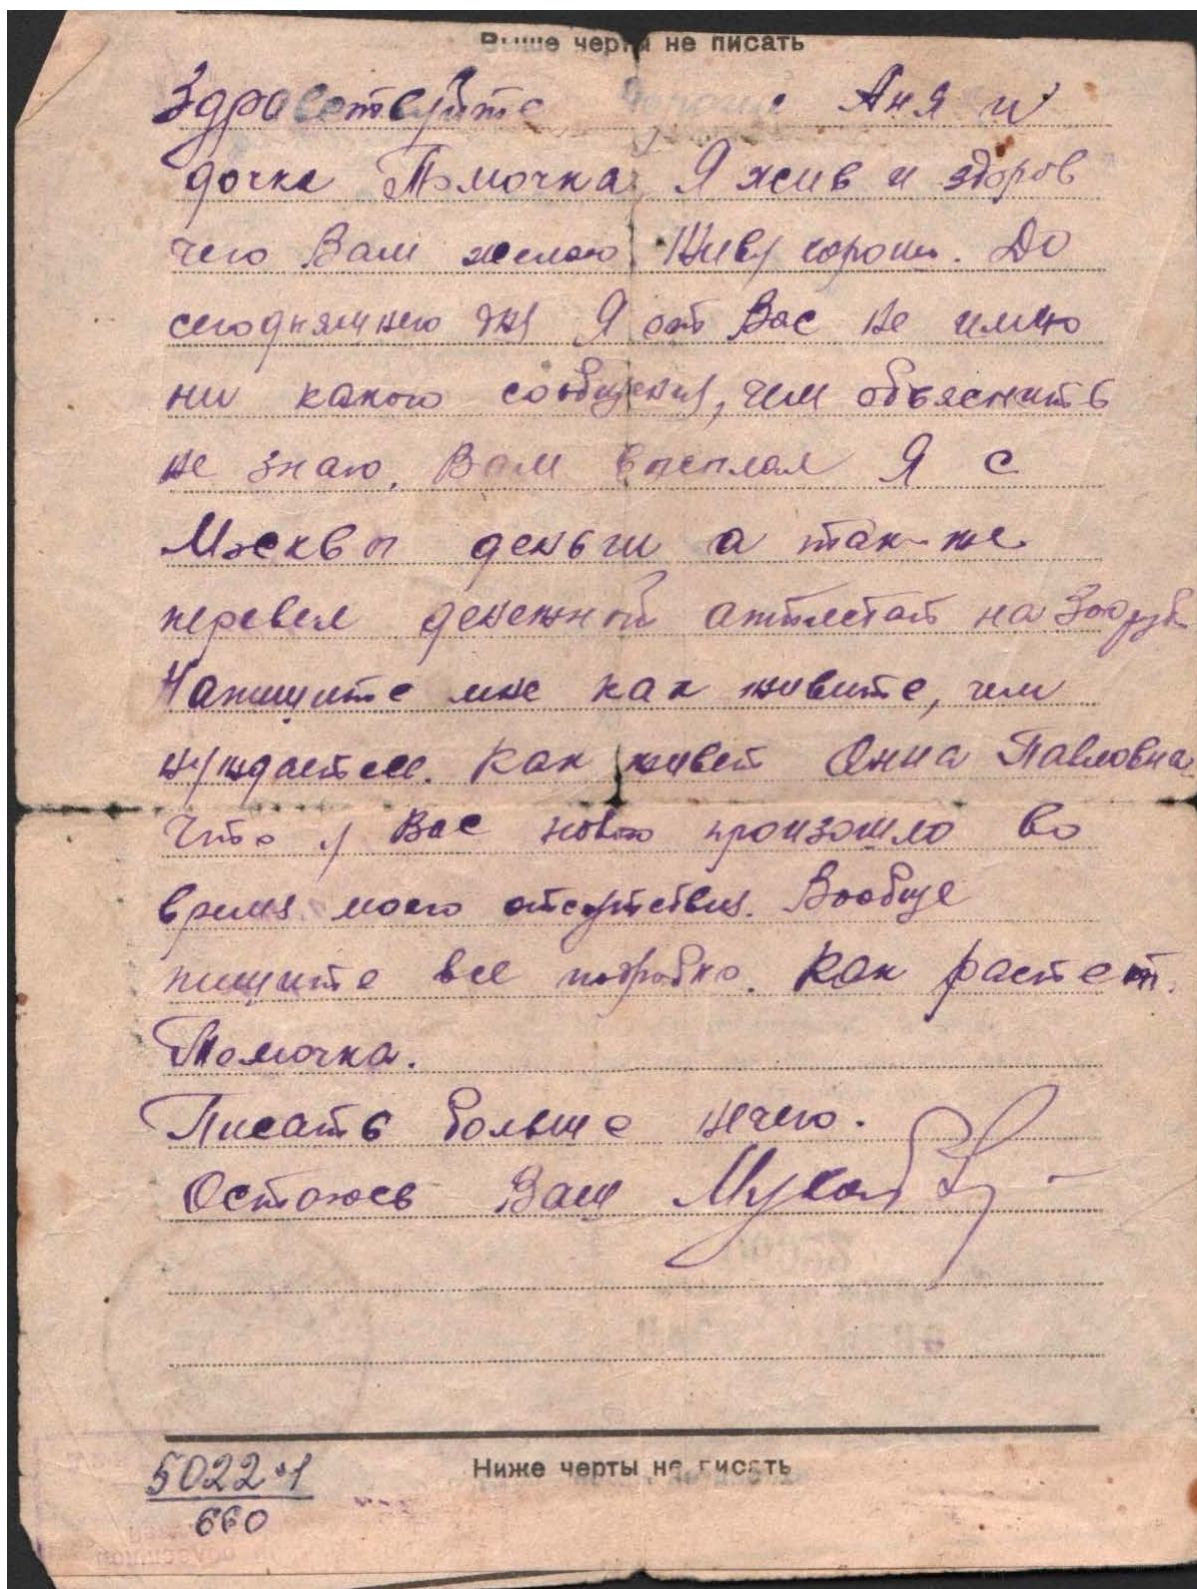 Выше черты не писать
Здравствуйте дорогие Аня и
дочка Томочка. Я жив и здоров
чего Вам желаю. Живу хорошо. До
сегодняшнего дня Я от Вас не имею
ни какого сообщения, чем объяснить
не знаю. Вам выслал Я с
Москвы деньги а так-же
перевел денежной аттестат на 300 руб.
Напишите мне как живите, чем
нуждаетесь. Как живет Анна Павловна.
Что у Вас нового произошло во
время моего отсутствия. Вообще
пишите все подробно. Как растет
Томочка.
Писать больше нечего.
Остаюсь Ваш
Ниже черты не писать
5022
660